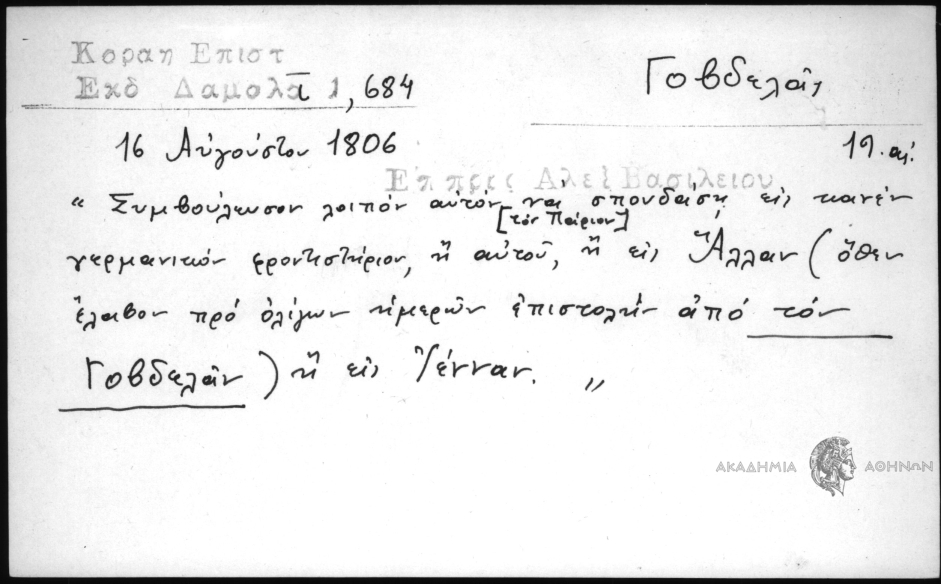 Κοραη Επιστ
Εκδ Δαμαλᾶ 1, 684
Γοβδελᾶς
16 Αὐγούστου 1806
19. αἰ.
Επ προς Αλεξ Βασιλειου
“ Συμβούλευσον λοιπόν αὐτόν νά σπουδάσῃ εἰς κανέν
[τόν Πάριον]
γερμανικόν φροντιστήριον, ἤ αὐτοῦ, ἤ εἰς Ἅλλαν (ὅθεν
ἔλαβον πρό ὀλίγων ἡμερῶν ἐπιστολήν ἀπό τόν
Γοβδελᾶν) ἤ εἰς Ἰένναν. „
ΑΚΑΔΗΜΙΑ ΑΘΗΝΩΝ